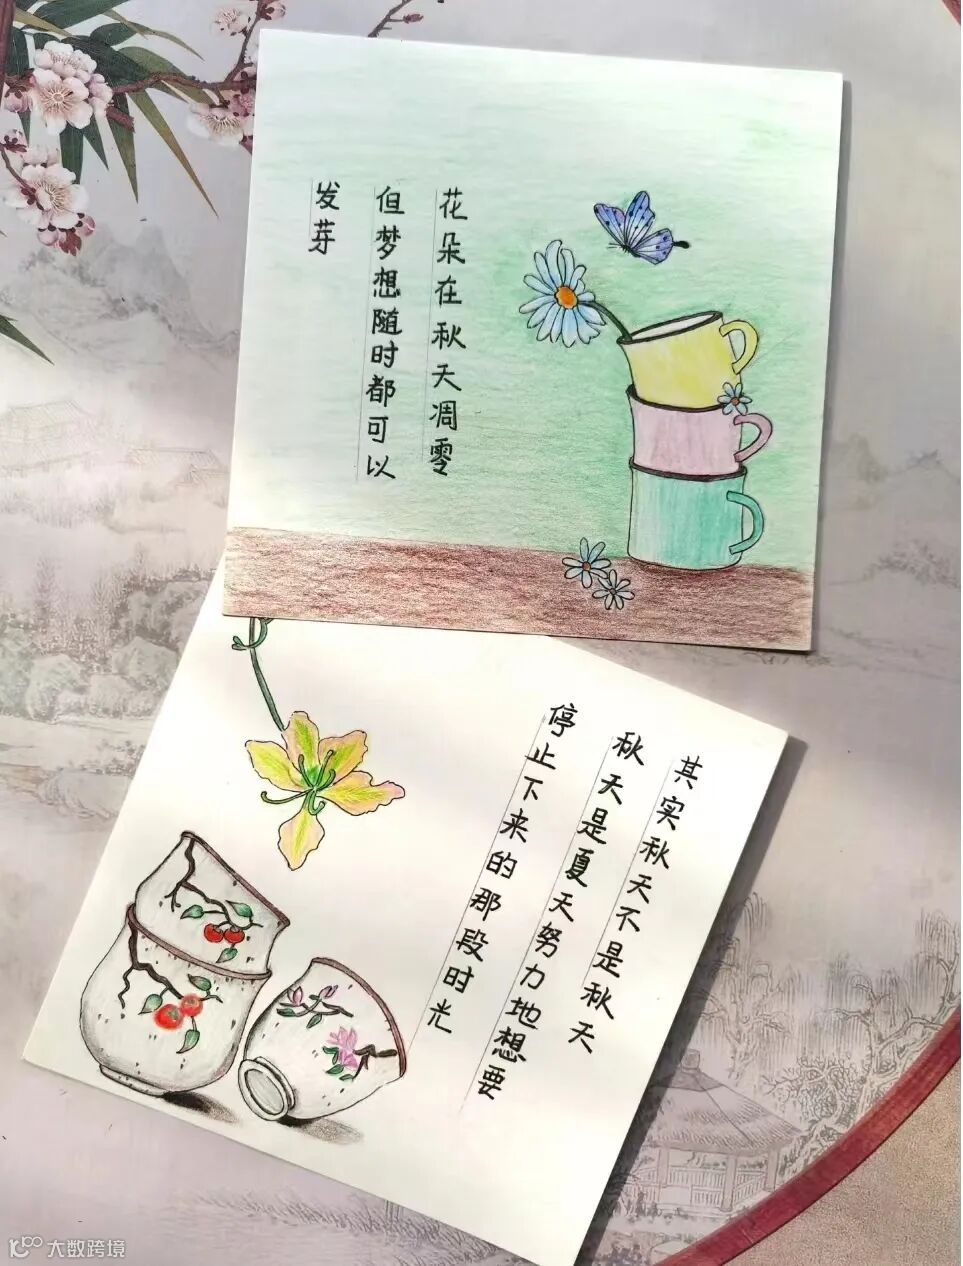 花朵在秋天凋零
但梦想随时都可以
发芽
其实秋天不是秋天
秋天是夏天努力地想要
停止下来的那段时光
大数跨境